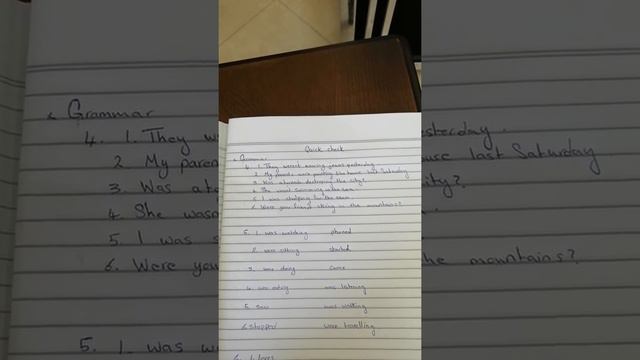 Quick check
Grammar
4. 1. They weren't wearing jeans yesterday.
2. My parents were painting the house last Saturday
3. Was a tornado destroying the city?
4. She wasn't swimming in the sea.
5. I was studying for the exam.
6. Were your friends skiing in the mountains?
5. 1. was watching phoned
2. were sitting started
3. were doing came
4. was eating was listening
5. saw was walking
6. stopped were travelling
6. 1. loves